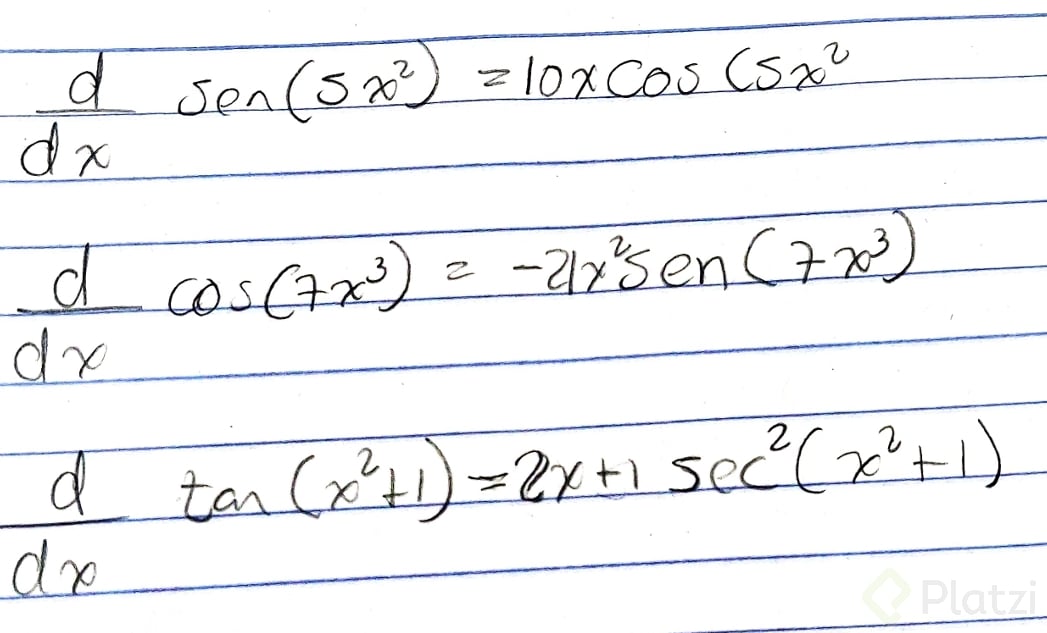 d/dx sen(5x²) = 10x cos (5x²
d/dx cos(7x³) = -21x² sen(7x³)
d/dx tan(x²+1) = 2x+1 sec²(x²+1)
Platzi